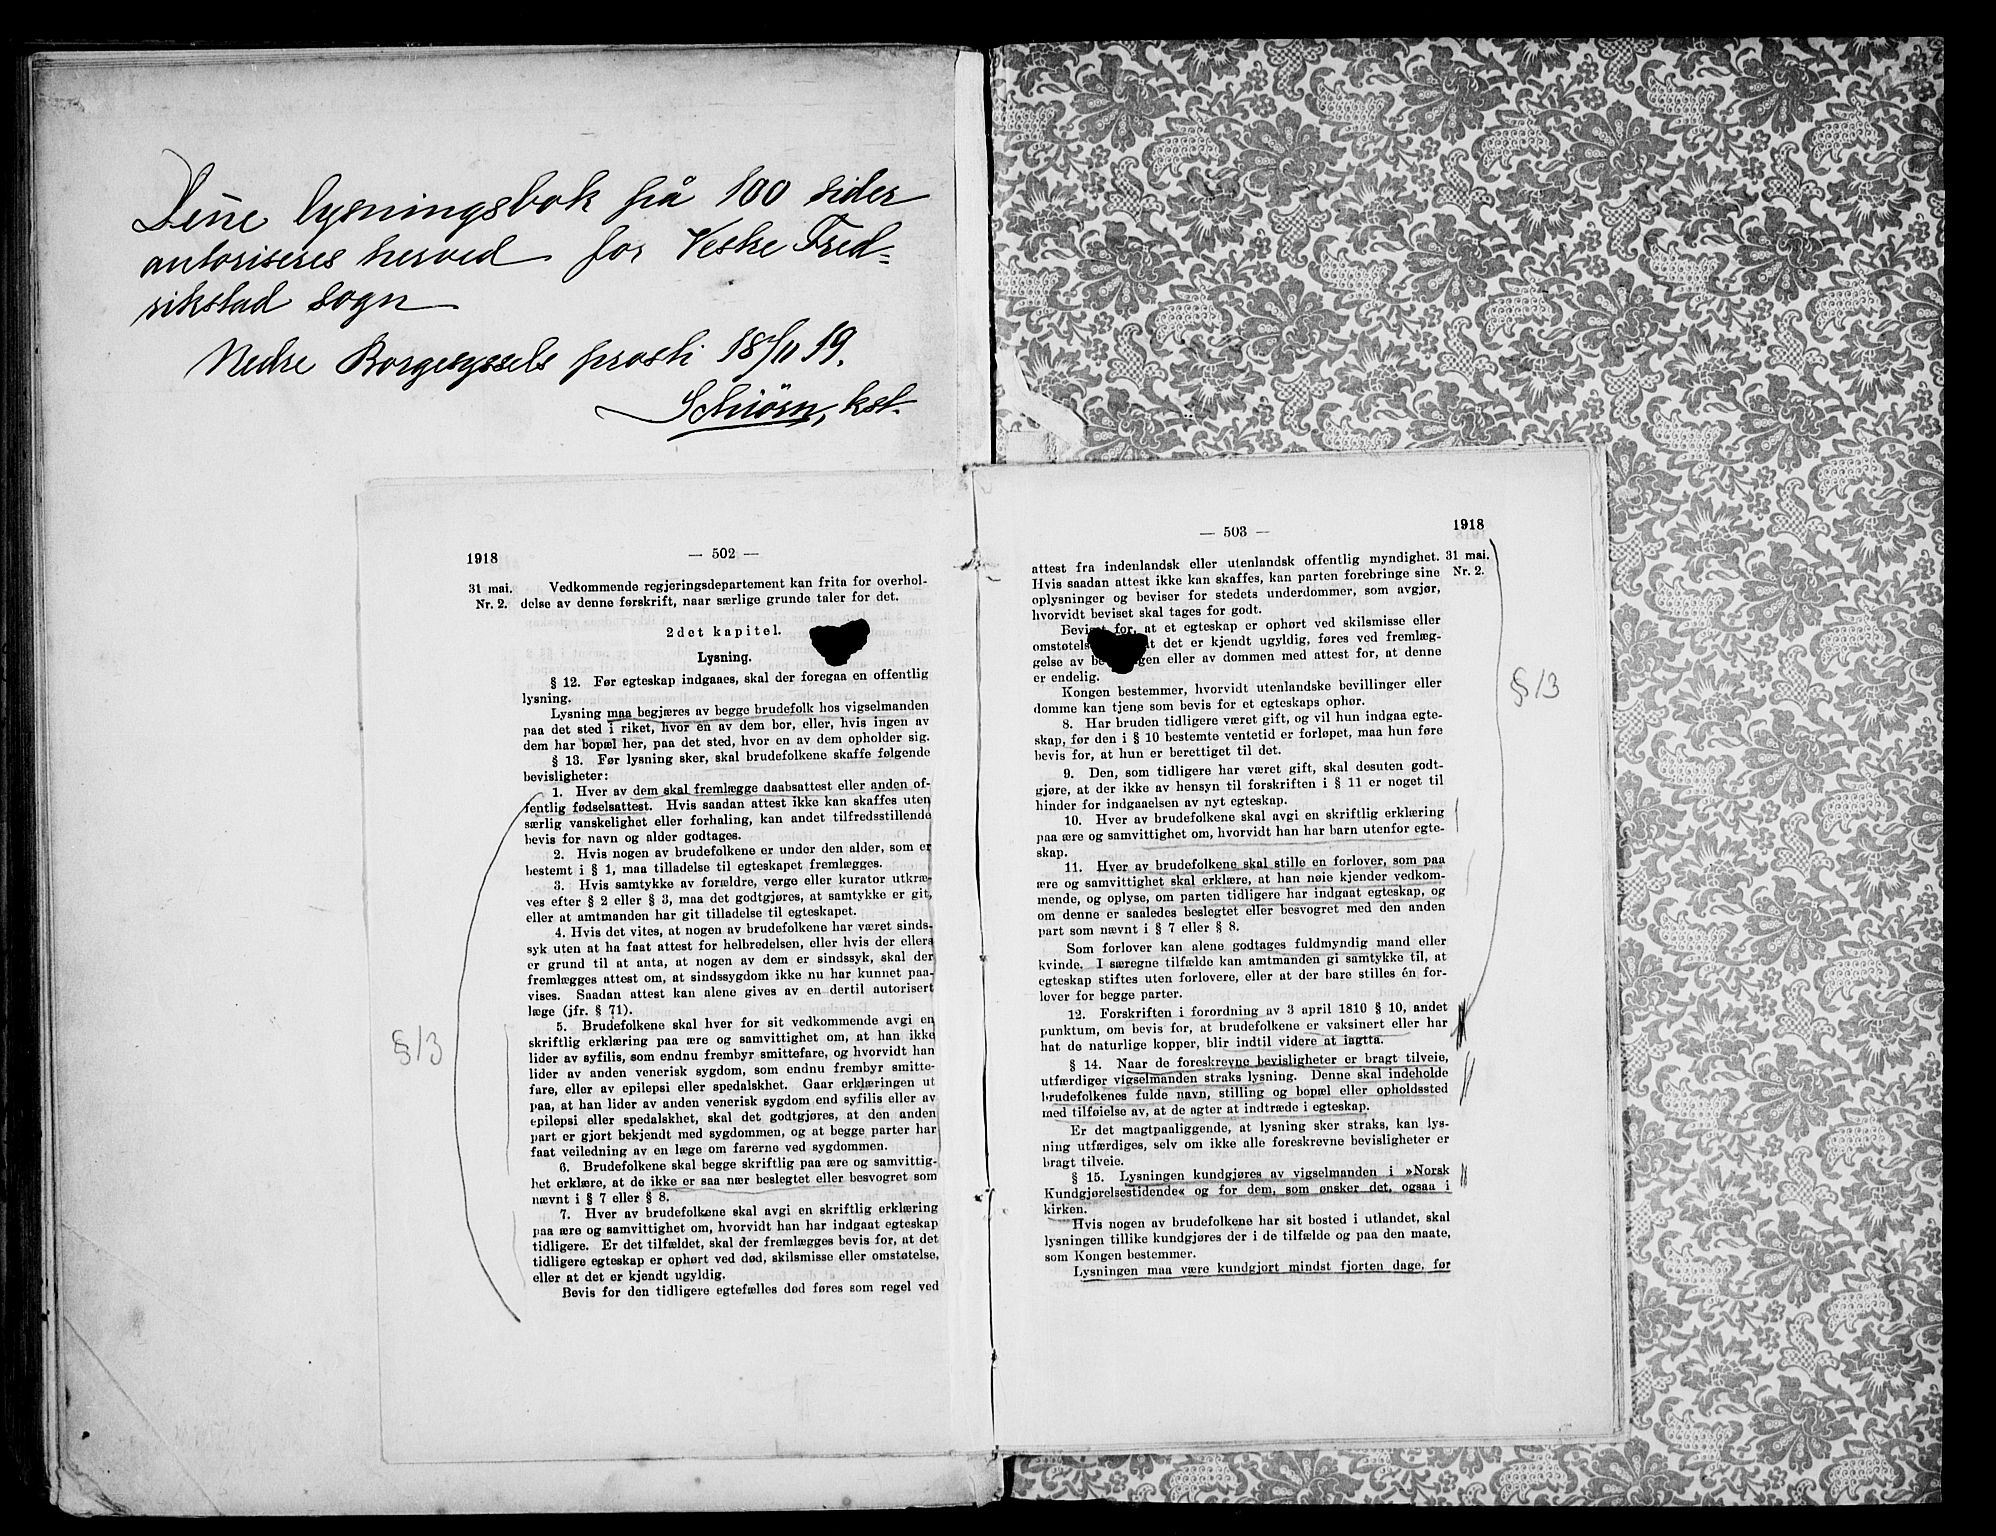 Denne lysningsbok på 100 sider
autoriseres herved for Vestre Fred=
rikstad sogn
Nedre Borgesyssels prosti 18/11 19.
Schiörn, kst.
1918
— 502 —
31 mai.
Nr. 2.
Vedkommende regjeringsdepartement kan frita for overhol-
delse av denne forskrift, naar særlige grunde taler for det.
2det kapitel.
Lysning.
§ 12. Før egteskap indgaaes, skal der foregaa en offentlig
lysning.
Lysning maa begjæres av begge brudefolk hos vigselmanden
paa det sted i riket, hvor en av dem bor, eller, hvis ingen av
dem har bopæl her, paa det sted, hvor en av dem opholder sig.
§ 13. Før lysning sker, skal brudefolkene skaffe følgende
bevisligheter:
1. Hver av dem skal fremlægge daabsattest eller anden of-
fentlig fødselsattest. Hvis saadan attest ikke kan skaffes uten
særlig vanskelighet eller forhaling, kan andet tilfredsstillende
bevis for navn og alder godtages.
2. Hvis nogen av brudefolkene er under den alder, som er
bestemt i § 1, maa tilladelse til egteskapet fremlægges.
3. Hvis samtykke av forældre, verge eller kurator utkræ-
ves efter § 2 eller § 3, maa det godtgjøres, at samtykke er git,
eller at amtmanden har git tilladelse til egteskapet.
4. Hvis det vites, at nogen av brudefolkene har været sinds-
syk uten at ha faat attest for helbredelsen, eller hvis der ellers
er grund til at anta, at nogen av dem er sindssyk, skal der
fremlægges attest om, at sindssygdom ikke nu har kunnet paa-
vises. Saadan attest kan alene gives av en dertil autorisert
læge (jfr. § 71).
5. Brudefolkene skal hver for sit vedkommende avgi en
skriftlig erklæring paa ære og samvittighet om, at han ikke
lider av syfilis, som endnu frembyr smittefare, og hvorvidt han
lider av anden venerisk sygdom, som endnu frembyr smitte-
fare, eller av epilepsi eller spedalskhet. Gaar erklæringen ut
paa, at han lider av anden venerisk sygdom end syfilis eller av
epilepsi eller spedalskhet, skal det godtgjøres, at den anden
part er gjort bekjendt med sygdommen, og at begge parter har
faat veiledning av en læge om farerne ved sygdommen.
6. Brudefolkene skal begge skriftlig paa ære og samvittig-
het erklære, at de ikke er saa nær beslegtet eller besvogret som
nævnt i § 7 eller § 8.
7. Hver av brudefolkene skal avgi en skriftlig erklæring
paa ære og samvittighet om, hvorvidt han har indgaat egteskap
tidligere. Er det tilfældet, skal der fremlægges bevis for, at det
tidligere egteskap er ophørt ved død, skilsmisse eller omstøtelse,
eller at det er kjendt ugyldig.
Bevis for den tidligere egtefælles død føres som regel ved
§ 13
— 503 —
1918
31 mai.
Nr. 2.
attest fra indenlandsk eller utenlandsk offentlig myndighet.
Hvis saadan attest ikke kan skaffes, kan parten forebringe sine
oplysninger og beviser for stedets underdommer, som avgjør,
hvorvidt beviset skal tages for godt.
for, at et egteskap er ophørt ved skilsmisse eller
det er kjendt ugyldig, føres ved fremlæg-
gelse av eller av dommen med attest for, at denne
er endelig.
Kongen bestemmer, hvorvidt utenlandske bevillinger eller
domme kan tjene som bevis for et egteskaps ophør.
8. Har bruden tidligere været gift, og vil hun indgaa egte-
skap, før den i § 10 bestemte ventetid er forløpet, maa hun føre
bevis for, at hun er berettiget til det.
9. Den, som tidligere har været gift, skal desuten godt-
gjøre, at der ikke av hensyn til forskriften i § 11 er noget til
hinder for indgaaelsen av nyt egteskap.
10. Hver av brudefolkene skal avgi en skriftlig erklæring
paa ære og samvittighet om, hvorvidt han har barn utenfor egte-
skap.
11. Hver av brudefolkene skal stille en forlover, som paa
ære og samvittighet skal erklære, at han nøie kjender vedkom-
mende, og oplyse, om parten tidligere har indgaat egteskap, og
om denne er saaledes beslegtet eller besvogret med den anden
part som nævnt i § 7 eller § 8.
Som forlover kan alene godtages fuldmyndig mand eller
kvinde. I særegne tilfælde kan amtmanden gi samtykke til, at
egteskap stiftes uten forlovere, eller at der bare stilles én for-
lover for begge parter.
12. Forskriften i forordning av 3 april 1810 § 10, andet
punktum, om bevis for, at brudefolkene er vaksinert eller har
hat de naturlige kopper, blir indtil videre at iagtta.
§ 14. Naar de foreskrevne bevisligheter er bragt tilveie,
utfærdiger vigselmanden straks lysning. Denne skal indeholde
brudefolkenes fulde navn, stilling og bopæl eller opholdssted
med tilføielse av, at de agter at indtræde i egteskap.
Er det magtpaaliggende, at lysning sker straks, kan lys-
ning utfærdiges, selv om ikke alle foreskrevne bevisligheter er
bragt tilveie.
§ 15. Lysningen kundgjøres av vigselmanden i »Norsk
Kundgjørelsestidende« og for dem, som ønsker det, ogsaa i
kirken.
Hvis nogen av brudefolkene har sit bosted i utlandet, skal
lysningen tillike kundgjøres der i de tilfælde og paa den maate,
som Kongen bestemmer.
Lysningen maa være kundgjort mindst fjorten dage, før
§ 13